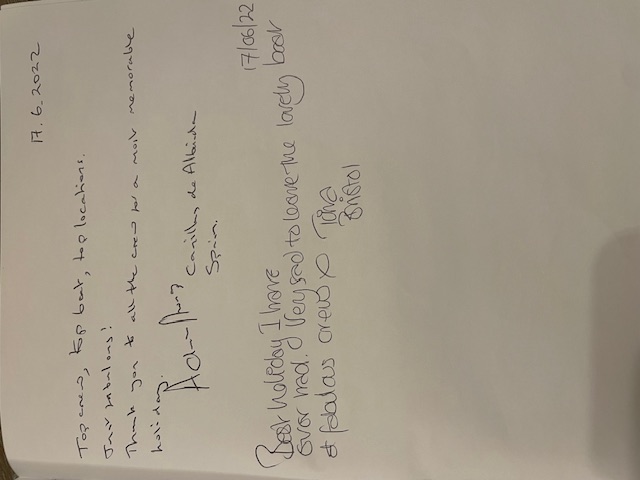 17.6.2022
Top crew, top boat, top locations.
Just fabulous!
Thank you to all the crew for a most memorable
holiday.
Canillas de Albaida
Spain.
17/06/22
Best holiday I have
ever had. Very sad to leave the lovely boat
& fabulous crew x
Tina
Bristol